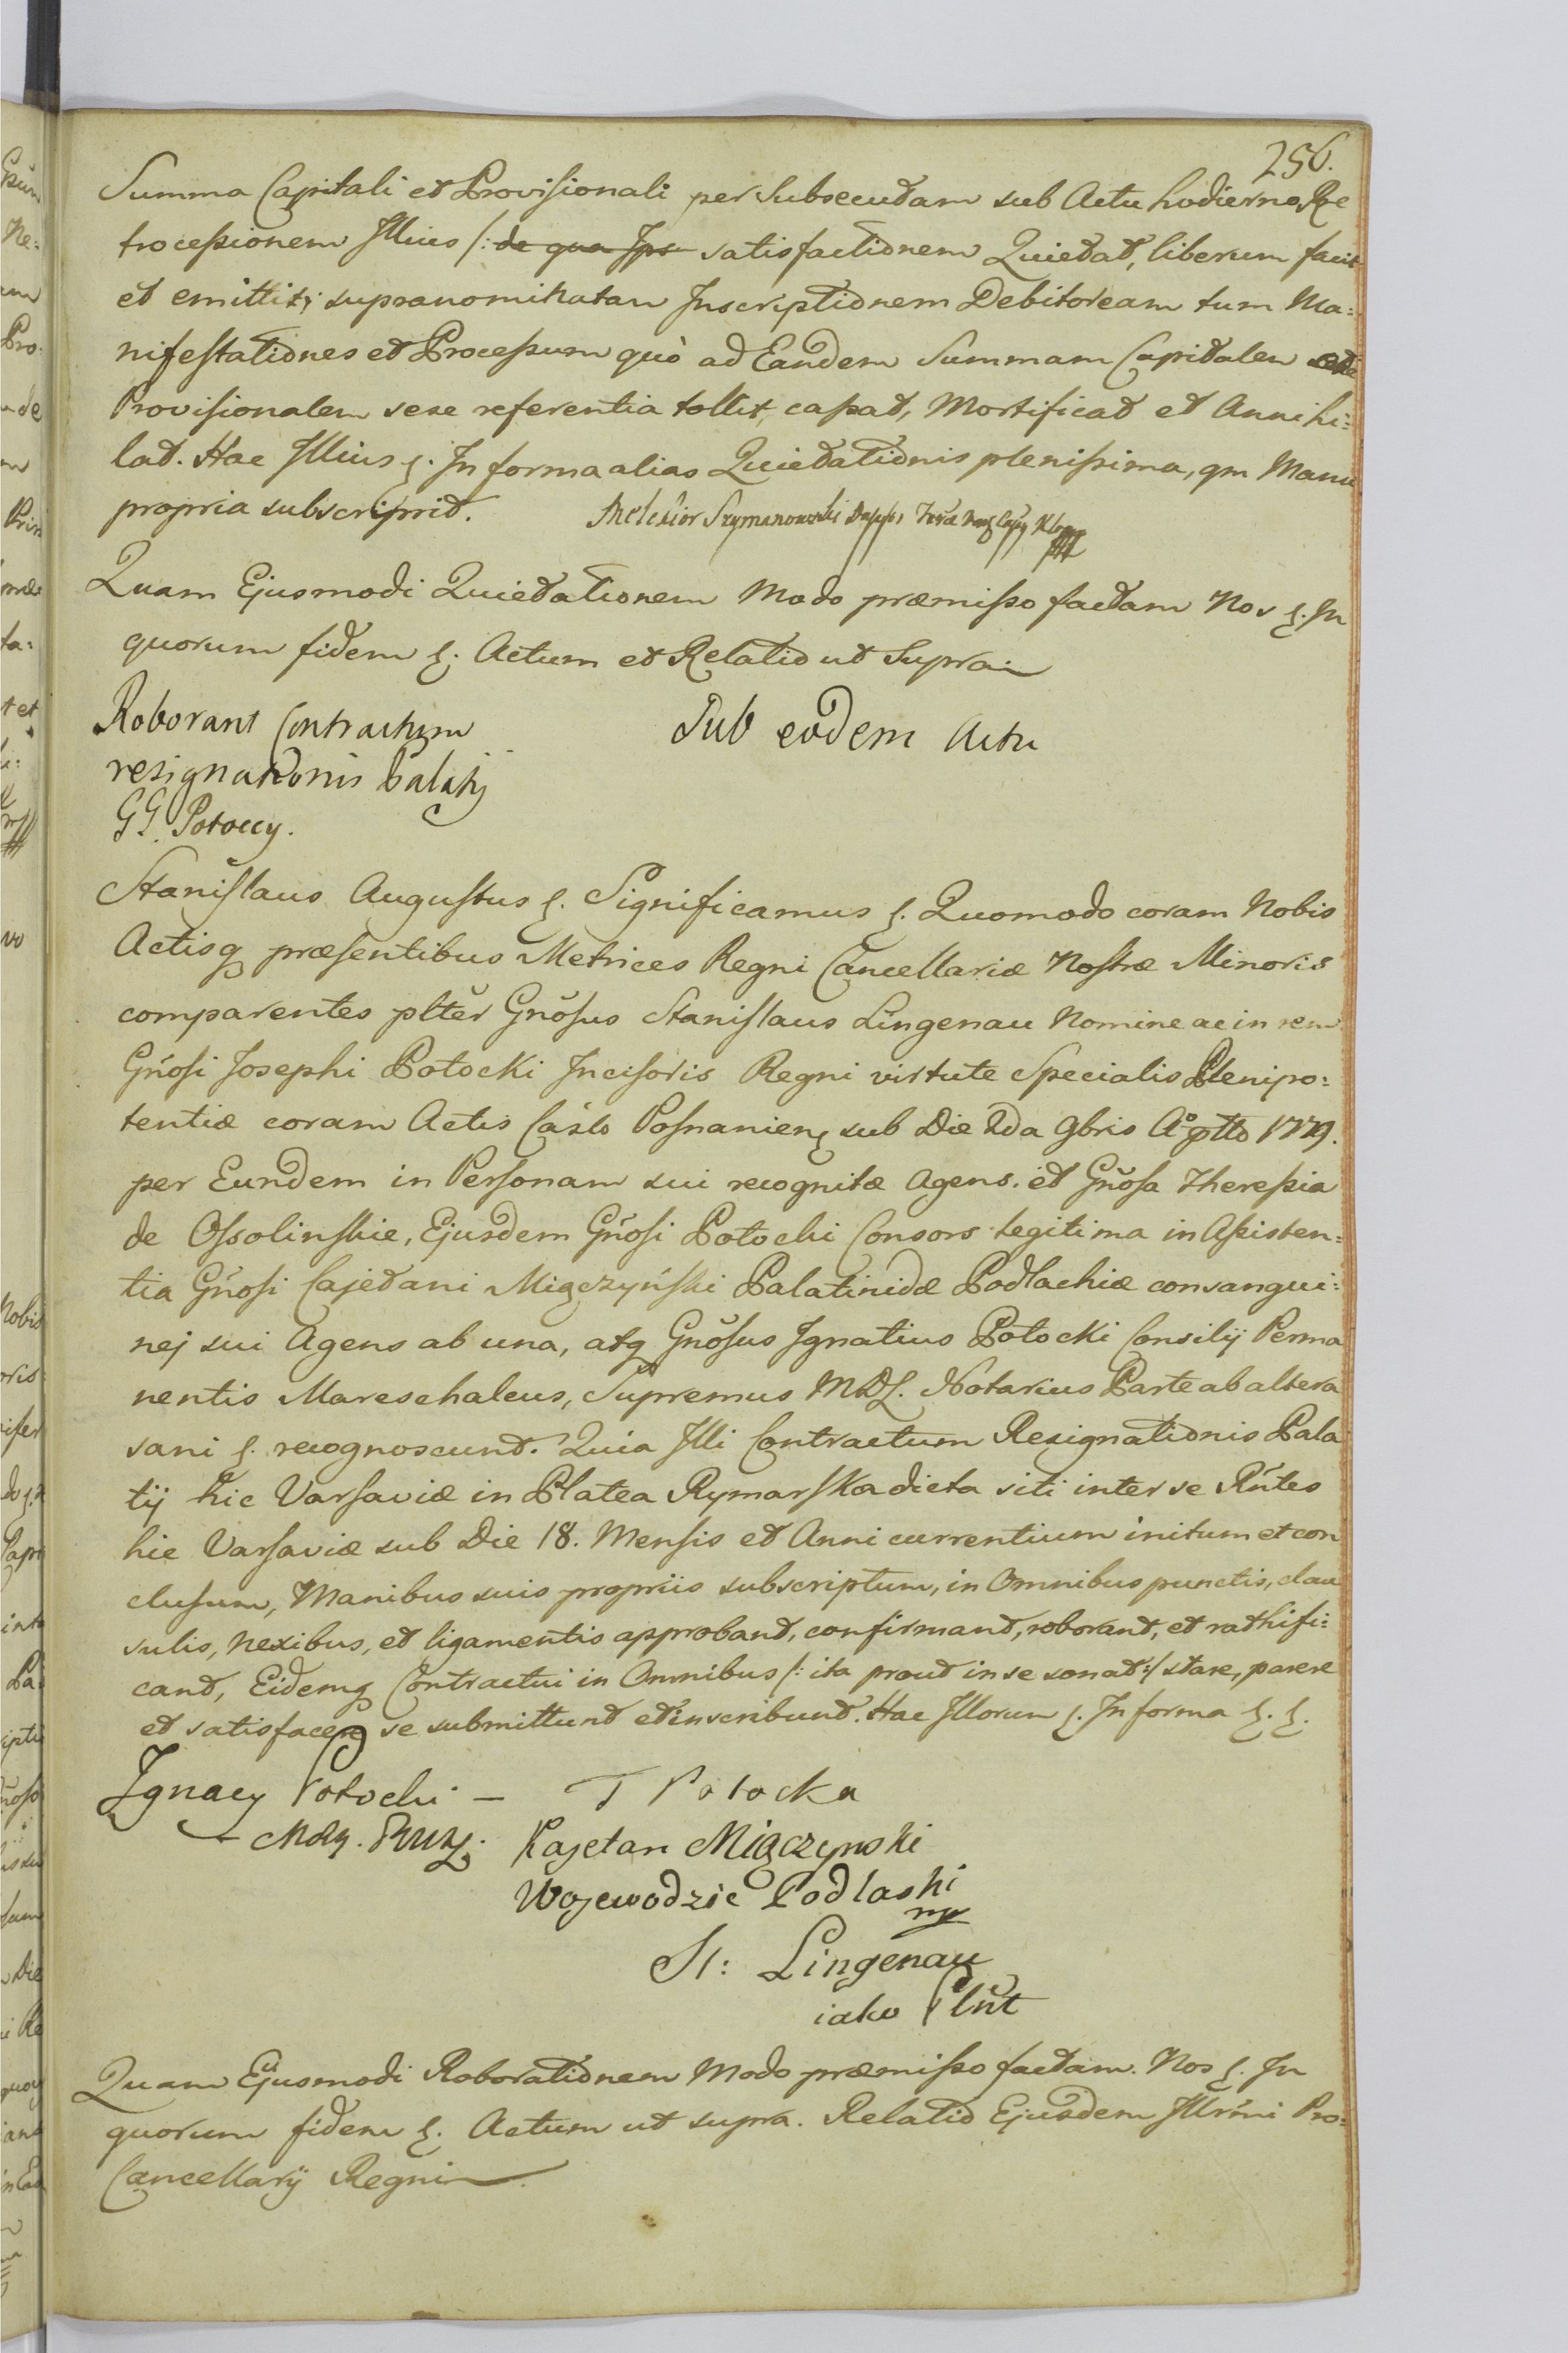 256.
Summa Capitali et Provisionali per Subsecutam sub Actu hodierno Re
trocessionem Illius /: de qua Ips satisfactionem Quietat, liberum facit
et emittit; supranominatam Inscriptionem Debitoream tum Ma=
nifestationes et Processum quò ad Eandem Summam Capitalem
Provisionalem sese referentia tollit, cassat, Mortificat et Annihi=
lat. Hac Illius &. In forma alias Quietationis plenissima, qm Manu
propria subscripsit.
Melchior Szymanowski
Quam Ejusmodi Quietationem Modo præmisso factam Nos &. In
quorum fidem &. Actum et Relatio ut Supra
Roborant Contractum
resignationis Palatij
GG. Potoccy.
Sub eodem Actu
Stanislaus Augustus &. Significamus &. Quomodo coram Nobis
Actisq præsentibus Metrices Regni Cancellariæ Nostræ Minoris
comparentes plter Gnosus Stanislaus Lingenau Nomine ac in rem
Gnosi Josephi Potocki Incisoris Regni virtute Specialis Plenipo=
tentiæ coram Actis Castr Posnanien sub Die 2da 9bris Aº ptto 1779.
per Eundem in Personam sui recognitæ Agens. et Gnosa Theressia
de Ossolinskie, Ejusdem Gnosi Potocki Consors legitima in Assisten=
tia Gnosi Cajetani Miączyński Palatinidæ Podlachiæ consangui=
nej sui Agens ab una, atq Gnosus Ignatius Potocki Consilij Perma
nentis Mareschalcus, Supremus MDL. Notarius Parte ab altera
sani &. recognoscunt. Quia Illi Contractum Resignationis Pala
tij hic Varsaviæ in Platea Rymarska dicta siti inter se Rntes
hic Varsaviæ sub Die 18. Mensis et Anni currentium initum et con
clusum, Manibus suis propriis subscriptum, in Omnibus punctis, clau
sulis, nexibus, et ligamentis approbant, confirmant, roborant, et rathifi=
cant, Eidemq Contractui in Omnibus /: ita prout in se sonat :/ stare, parere
et satisfacere se submittunt et inscribunt. Hac Illorum &. In forma &. &.
Ignacy Potocki — T Potocka
Kajetan Miączynski
Wojewodzic Podlaski
mp
St: Lingenau
iako Plnt
Quam Ejusmodi Roborationem Modo præmisso factam. Nos &. In
quorum fidem &. Actum ut supra. Relatio Ejusdem Illrmi Pro=
Cancellarij Regni